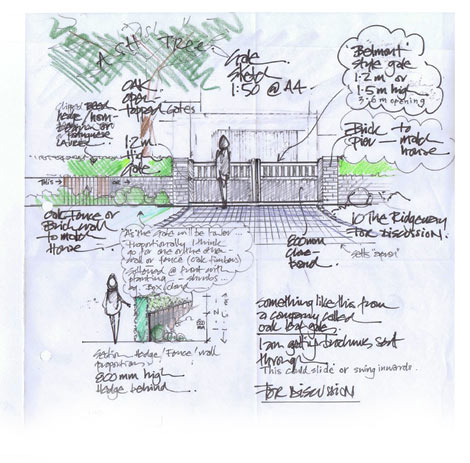 ASH TREE
Gate
Sketch
1:50 @ A4
"Belmont"
style gate
1.2m or
1.5m high
3.6m opening
OAK
open
topped gates
1.2m
High
gate
Clipped
hedge
or
Portuguese
Laurel
Brick
Pier — to
match
house
This
OR
Oak Fence or
Brick wall
to match
House
10 The Ridgeway
FOR DISCUSSION.
setts "apron"
As the gate will be lower...
proportionally I think
go for one or the other
wall or fence (oak timber)
softened @ front with
planting — shrubs
eg Box and
Section Hedge/Fence/wall
proportions.
800mm high
Hedge behind
something like this from
a company called
oak leaf gates.
I am getting brochures sent
through
This could slide or swing inwards.
FOR DISCUSSION